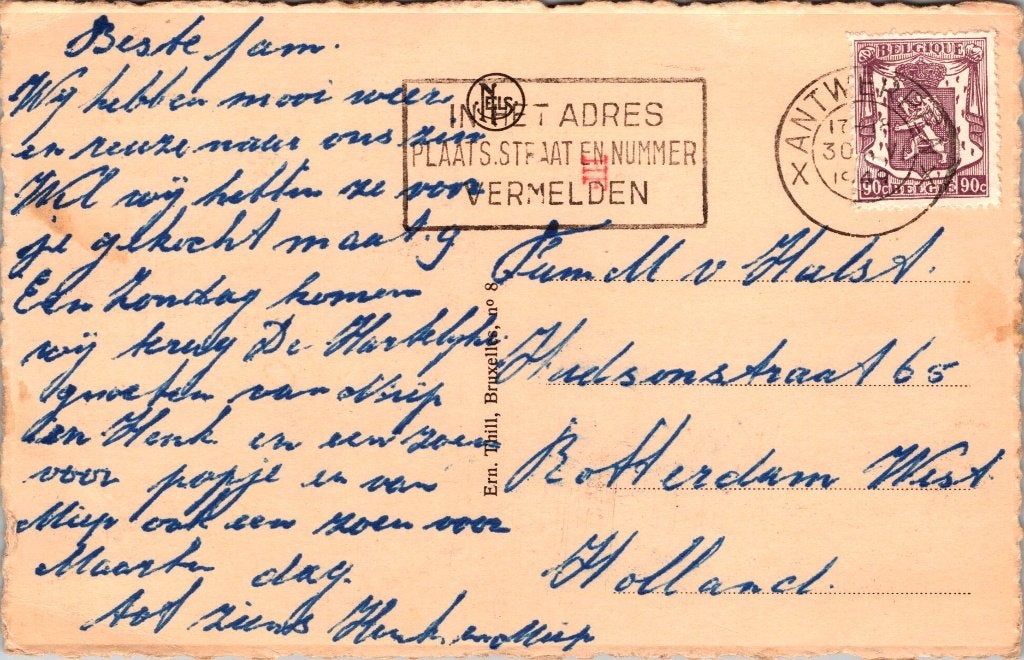 Beste fam.
Wij hebben mooi weer
en reuze naar ons zin
Wil wij hebben ze voor
je gekocht maat. 9
Een Zondag komen
wij terug De Hartelijke
groeten van Miep
en Henk en een zoen
voor popje en van
Miep ook een zoen voor
Maarten dag.
tot ziens Henk en Miep
NELS
IN HET ADRES
PLAATS.STRAAT EN NUMMER
VERMELDEN
ANTWERPEN
17
30
X X
BELGIQUE
90c BELGIE 90c
Ern. Thill, Bruxelles, nº 8
Fam M v Hulst.
Hudsonstraat 65
Rotterdam West
Holland.